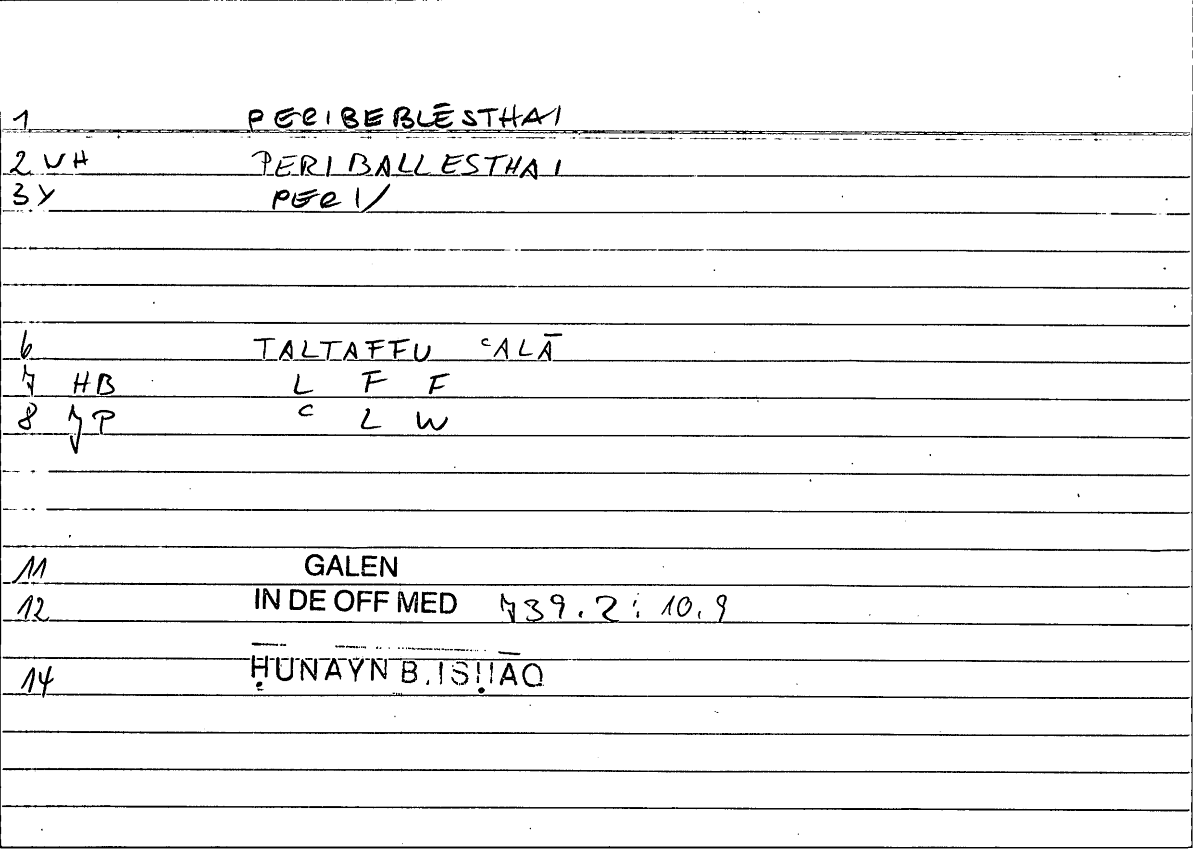 1 PERIBEBLĒSTHAI
2 VH PERIBALLESTHAI
3 Y PERI/
6 TALTAFFU ᶜALĀ
7 HB L F F
8 7P ᶜ L W
11 GALEN
12 IN DE OFF MED 739.2; 10.9
14 ḤUNAYN B. ISḤĀQ